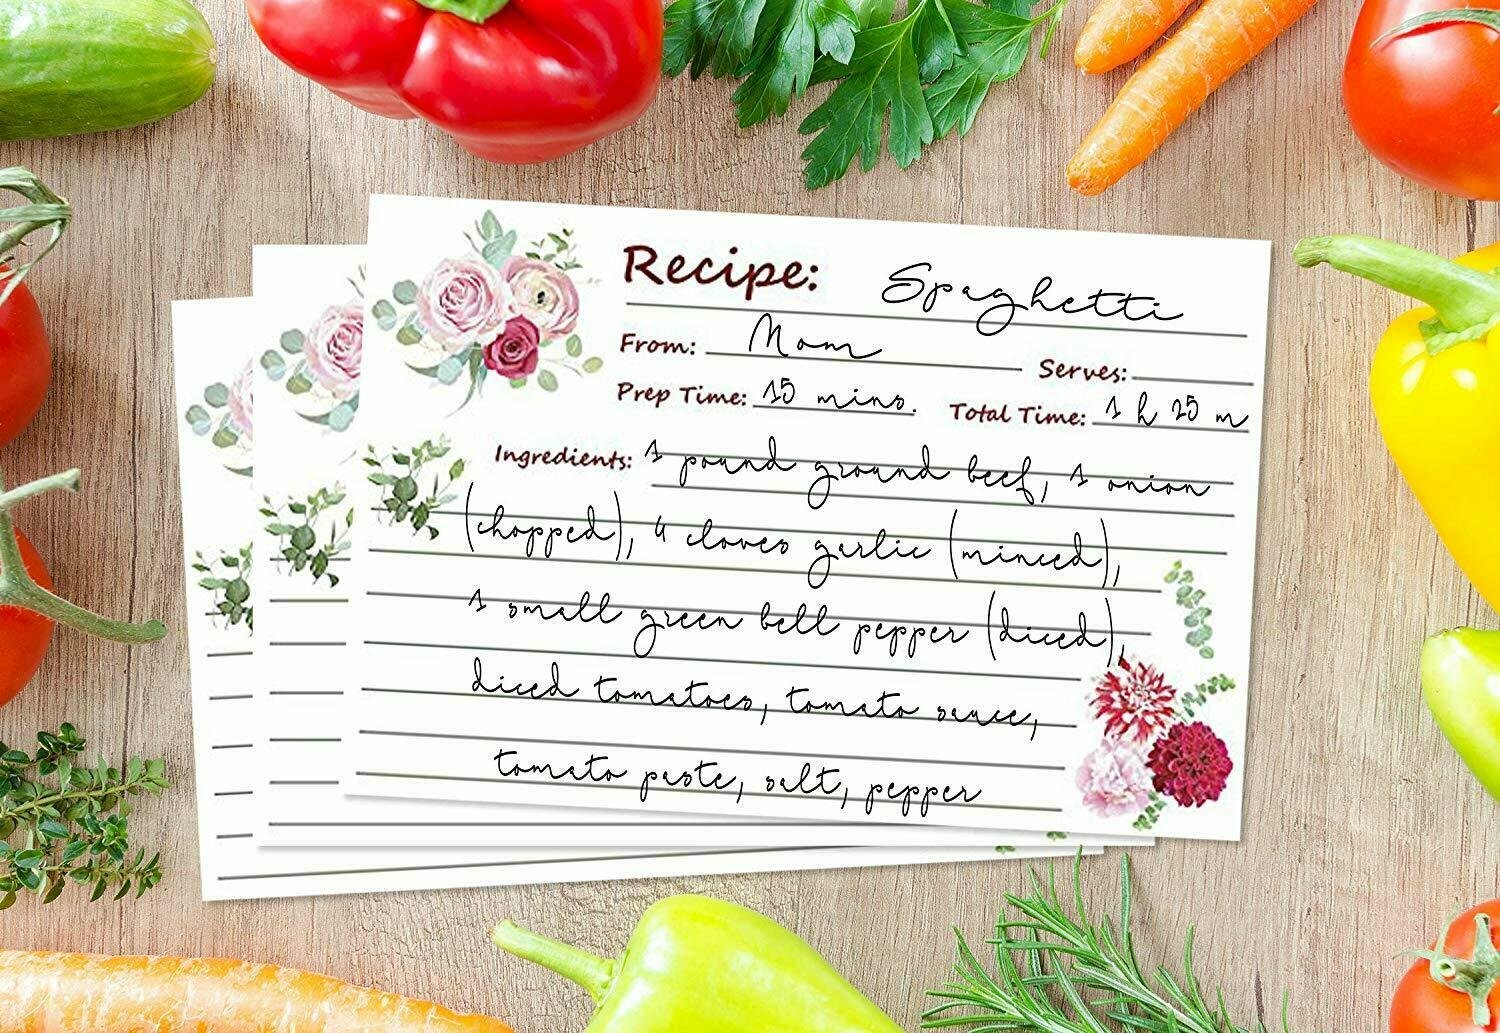 Recipe: Spaghetti
From: Mom Serves:
Prep Time: 15 mins. Total Time: 1 h 25 m
Ingredients: 1 pound ground beef, 1 onion
(chopped), 4 cloves garlic (minced),
1 small green bell pepper (diced),
diced tomatoes, tomato sauce,
tomato paste, salt, pepper